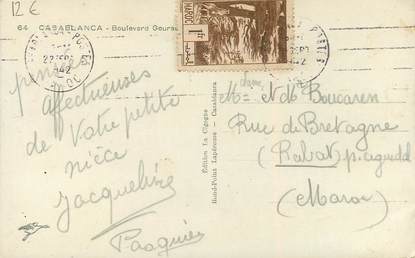 12 €
64 CASABLANCA - Boulevard Gourau
POSTES
MAROC
1F
pensées
affectueuses
de votre petite
nièce
Jacqueline
Pasquier
Édition La Cigogne
Rond-Point Lapérouse - Casablanca
dame
M et de Boucaren
Rue de Bretagne
(Rabat)
(Maroc)